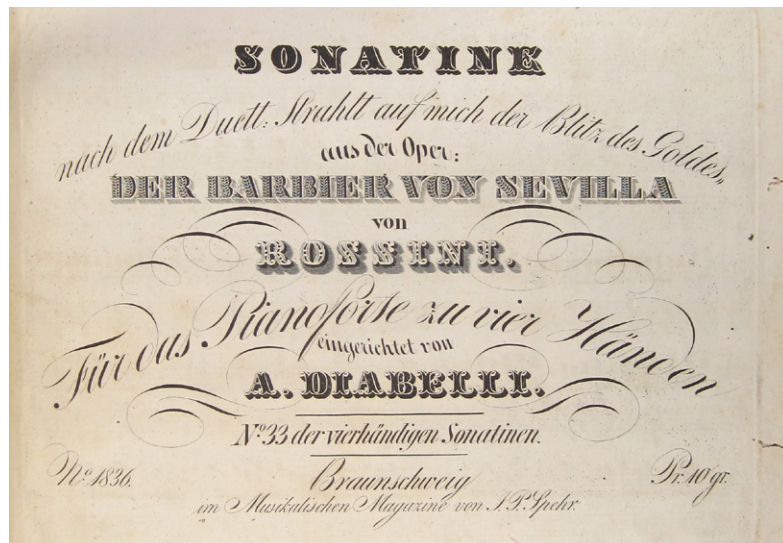 SONATINE
nach dem Duett: Strahlt auf mich der Blitz des Goldes„
aus der Oper:
DER BARBIER VON SEVILLA
von
ROSSINI.
Für das Pianoforte zu vier Händen
eingerichtet von
A. DIABELLI.
No. 33 der vierhändigen Sonatinen.
No. 1836. Braunschweig Pr. 10 gr.
im Musikalischen Magazine von J. P. Spehr.